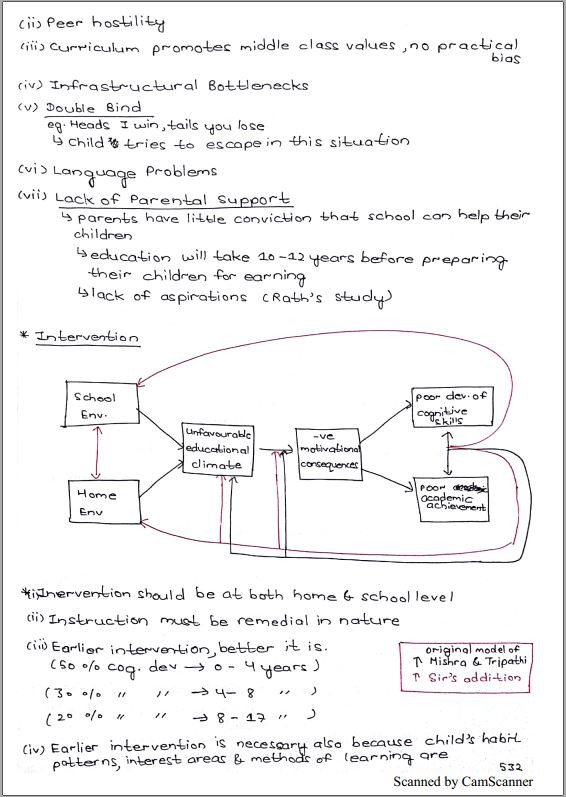 (ii) Peer hostility
(iii) Curriculum promotes middle class values, no practical
bias
(iv) Infrastructural Bottlenecks
(v) Double Bind
eg. Heads I win, tails you lose
↳ child tries to escape in this situation
(vi) Language Problems
(vii) Lack of Parental Support
↳ parents have little conviction that school can help their
children
↳ education will take 10-12 years before preparing
their children for earning
↳ lack of aspirations (Rath's study)
* Intervention
School
Env.
Home
Env
unfavourable
educational
climate
-ve
motivational
consequences
poor dev. of
cognitive
skills
poor
academic
achievement
*(i) Inervention should be at both home & school level
(ii) Instruction must be remedial in nature
(iii) Earlier intervention, better it is.
(50 % cog. dev → 0 - 4 years)
(30 % " " → 4 - 8 " )
(20 % " " → 8 - 17 " )
original model of
↑ Mishra & Tripathi
↑ Sir's addition
(iv) Earlier intervention is necessary also because child's habit
patterns, interest areas & methods of learning are
532
Scanned by CamScanner